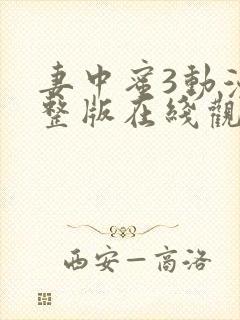 妻中蜜3動漫
整版在綫觀
西安—商洛